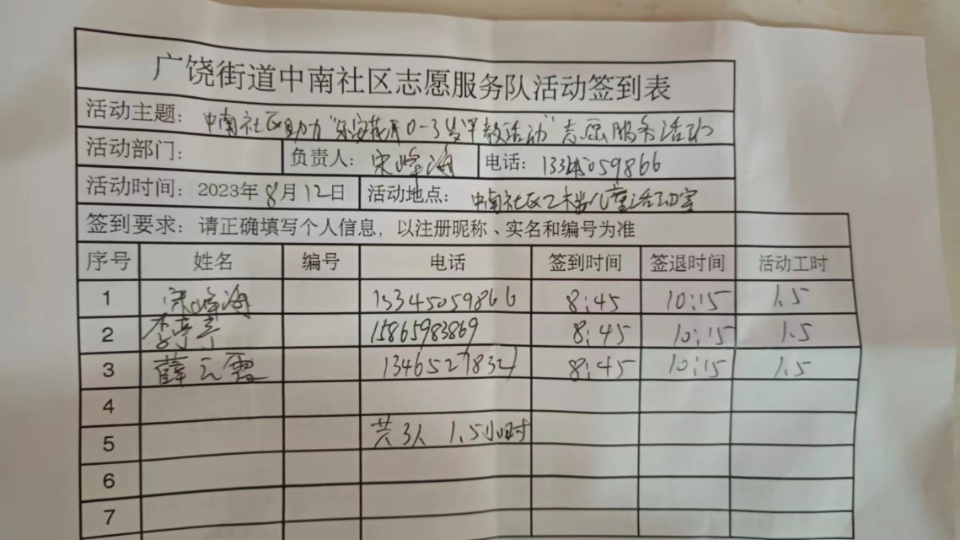 广饶街道中南社区志愿服务队活动签到表
活动主题：中南社区助力“乐安花开0-3岁早教活动”志愿服务活动
活动部门： 负责人：宋峰海 电话：13345059866
活动时间：2023年8月12日 活动地点：中南社区2楼儿童活动室
签到要求：请正确填写个人信息，以注册昵称、实名和编号为准
序号 姓名 编号 电话 签到时间 签退时间 活动工时
1 宋峰海 13345059866 8:45 10:15 1.5
2 李亭亭 15865983869 8:45 10:15 1.5
3 薛云霞 13465278321 8:45 10:15 1.5
4
5 共3人 1.5小时
6
7